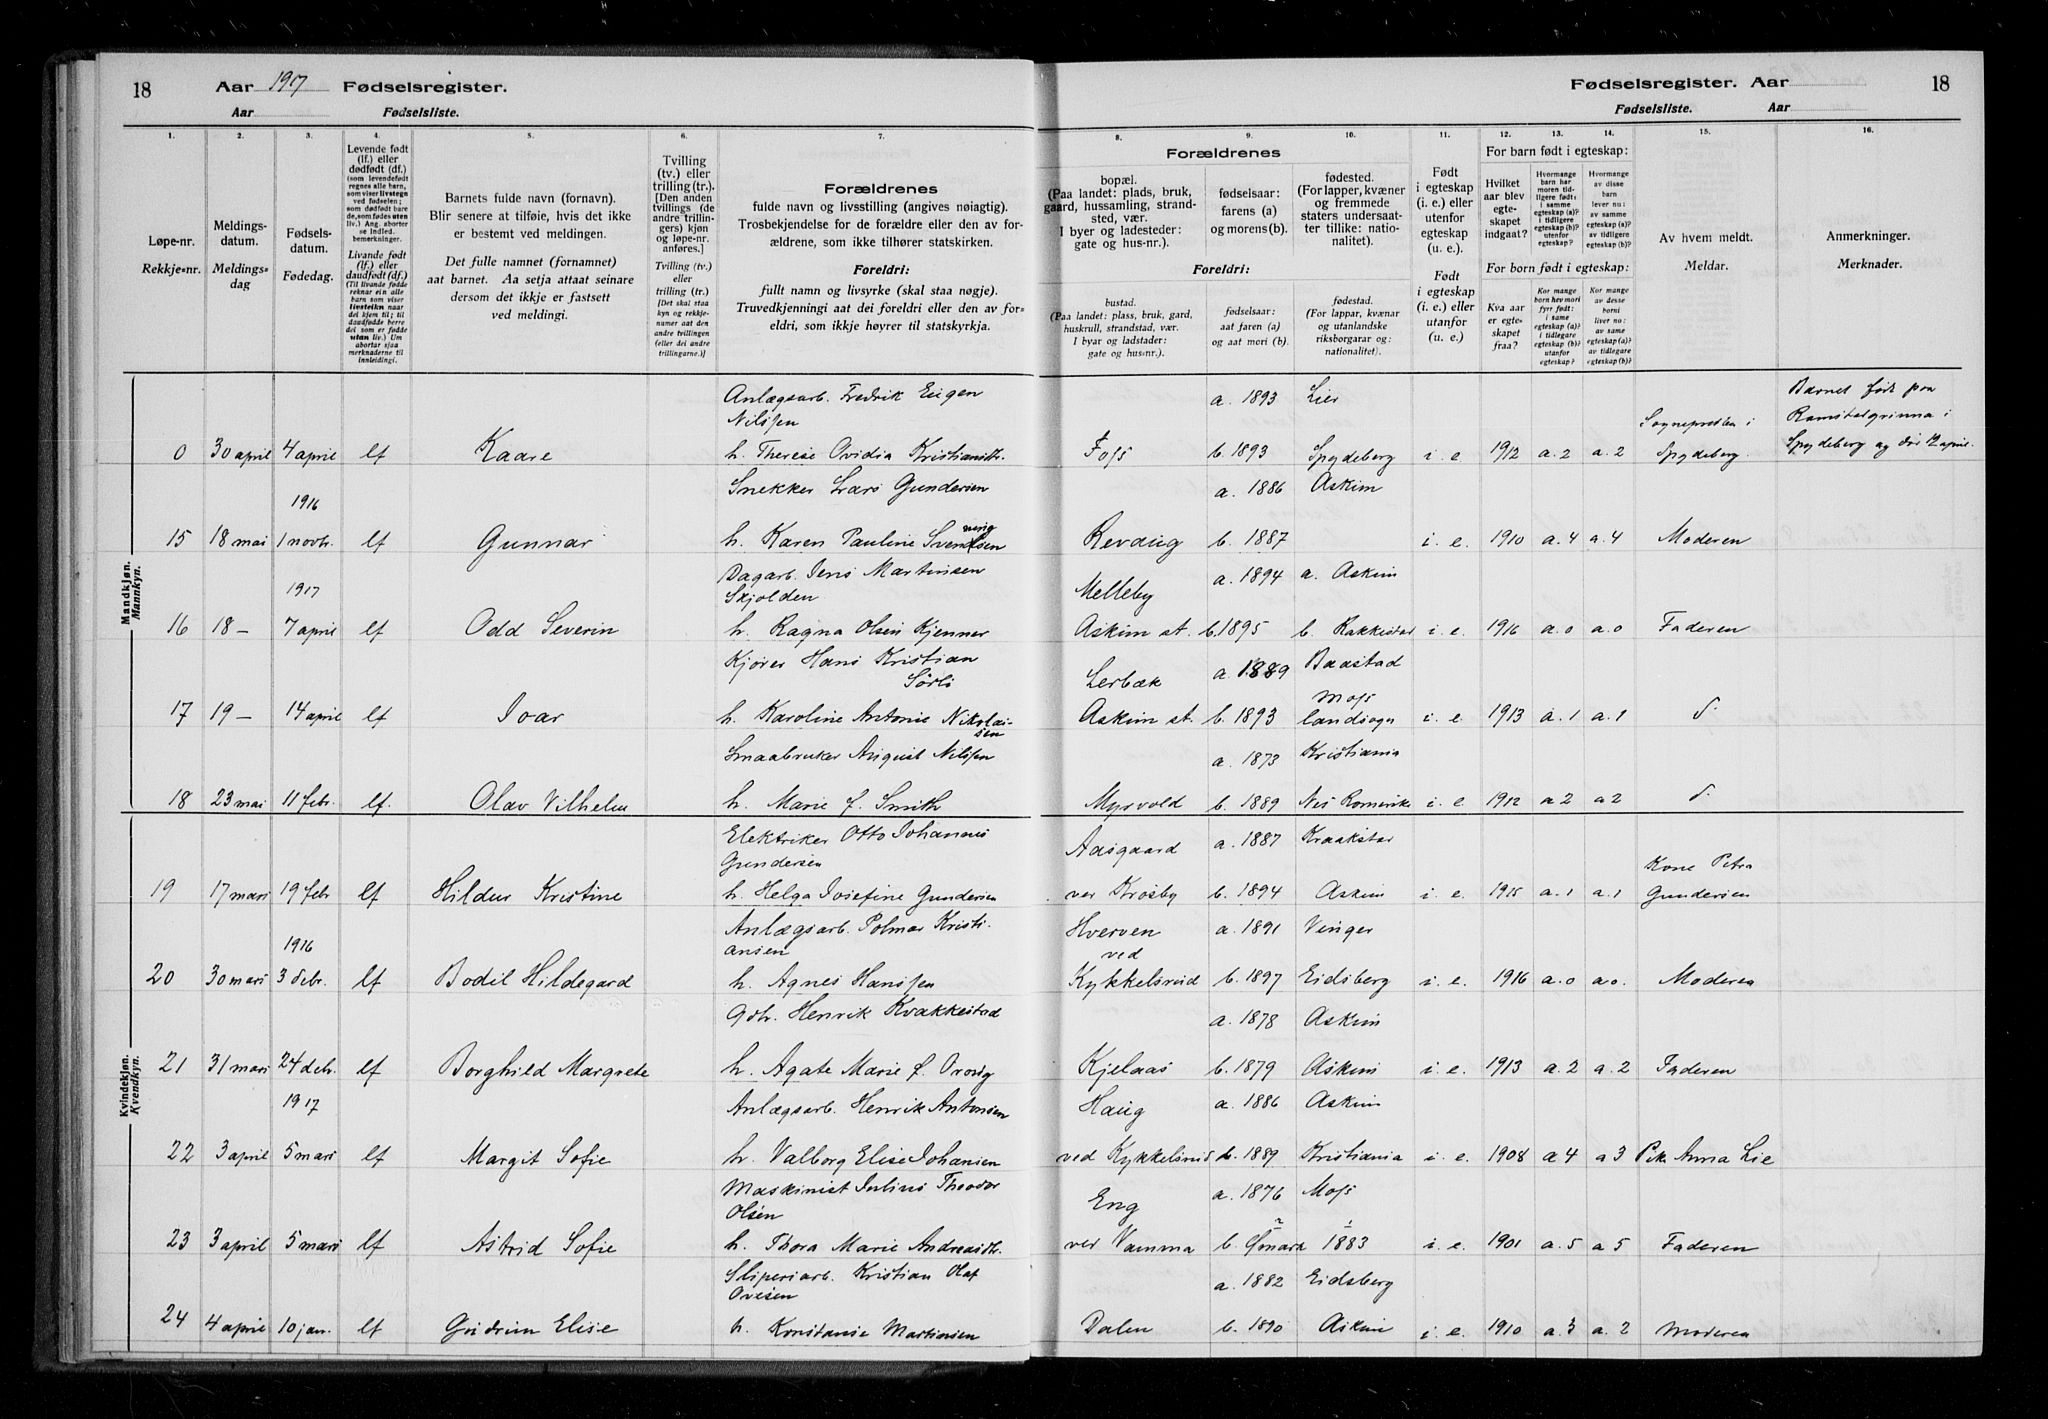 18 Aar 1917 Fødselsregister.
Aar Fødselsliste.
Fødselsregister. Aar 18
Fødselsliste. Aar
1. 2. 3. 4. 5. 6. 7. 8. 9. 10. 11. 12. 13. 14. 15. 16.
Løpe-nr.
Rekkje-nr.
Meldings-
datum.
Meldings-
dag
Fødsels-
datum.
Fødedag.
Levende født
(lf.) eller
dødfødt (df.)
(som levendefødt
regnes alle barn,
som viser livstegn
ved fødselen;
som dødfødt bare
de, som fødes uten
liv.) Ang. aborter
se indled.
bemerkninger.
Livande født
(lf.) eller
daudfødt (df.)
(Til livande fødde
reknar ein alle
barn som viser
livsteikn naar
dei kjem til; til
daudfødde berre
dei som er fødde
utan liv.) Um
abortar sjaa
merknaderne til
innleidingi.
Barnets fulde navn (fornavn).
Blir senere at tilføie, hvis det ikke
er bestemt ved meldingen.
Det fulle namnet (fornamnet)
aat barnet. Aa setja attaat seinare
dersom det ikkje er fastsett
ved meldingi.
Tvilling
(tv.) eller
trilling (tr.).
[Den anden
tvillings (de
andre trillin-
gers) kjøn
og løpe-nr.
anføres.]
Tvilling (tv.)
eller
trilling (tr.)
[Det skal staa
kyn og rekkje-
numer aat den
andre tvillingen
(eller dei andre
trillingarne.)]
Forældrenes
fulde navn og livsstilling (angives nøiagtig).
Trosbekjendelse for de forældre eller den av for-
ældrene, som ikke tilhører statskirken.
Foreldri:
fullt namn og livsyrke (skal staa nøgje).
Truvedkjenningi aat dei foreldri eller den av for-
eldri, som ikkje høyrer til statskyrkja.
Forældrenes
bopæl.
(Paa landet: plads, bruk,
gaard, hussamling, strand-
sted, vær.
I byer og ladesteder:
gate og hus-nr.).
fødselsaar:
farens (a)
og morens (b).
fødested.
(For lapper, kvæner
og fremmede
staters undersaat-
ter tillike: natio-
nalitet).
Foreldri:
bustad.
(Paa landet: plass, bruk, gard,
huskrull, strandstad, vær.
I byar og ladstader:
gate og hus-nr.).
fødselsaar:
aat faren (a)
og aat mori (b).
fødestad.
(For lappar, kvænar
og utanlandske
riksborgarar og:
nationalitet).
Født
i egteskap
(i. e.) eller
utenfor
egteskap
(u. e.).
Født
i egteskap
(i. e.) eller
utanfor
(u. e.)
For barn født i egteskap:
Hvilket
aar blev
egte-
skapet
indgaat?
Hvormange
barn har
moren tid-
ligere født:
i samme
egteskap (a)?
i tidligere
egteskap (b)?
utenfor
egteskap?
Hvormange
av disse
barn
lever nu:
av samme
egteskap (a)?
av tidligere
egteskap (b)?
For born født i egteskap:
Kva aar
er egte-
skapet
fraa?
Kor mange
born hev mori
fyrr født:
i same
egteskap (a)?
i tidlegare
egteskap (b)?
utanfor
egteskap?
Kor mange
av desse
borni
liver no:
av same
egteskap (a)?
av tidlegare
egteskap (b)?
Av hvem meldt.
Meldar.
Anmerkninger.
Merknader.
Mandkjøn.
Mannkyn.
Anlægsarb. Fredrik Eugen a. 1893 Lier
Nilssen
0 30 april 4 april lf Kaare h. Therese Ovidia Kristiansdtr. Foss b. 1893 Spydeberg i. e. 1912 a. 2 a. 2 Sogneprosten i Spydeberg. Barnet født paa Ramstadgrinna i Spydeberg og dør 12 april.
Snekker Lars Gundersen a. 1886 Askim
1916
15 18 mai 1 novbr. lf Gunnar h. Karen Pauline Svendsen Revaug b. 1887 i. e. 1910 a. 4 a. 4 Moderen
Dagarb. Jens Martinsen Skjolden Melleby a. 1894 a. Askim
1917
16 18 – 7 april lf Odd Severin h. Ragna Olsen Kjenner Askim st. b. 1895 b. Rakkestad i. e. 1916 a. 0 a. 0 Faderen
Kjører Hans Kristian Sørli Lerbæk a. 1889 Baastad
17 19 – 14 april lf Ivar h. Karoline Antonie Nikolaisen Askim st. b. 1893 Moss landsogn i. e. 1913 a. 1 a. 1 d.
Smaabruker August Nilssen a. 1873 Kristiania
18 23 mai 11 febr. lf. Olav Vilhelm h. Marie f. Smith Myrvold b. 1889 Nes Romerike i. e. 1912 a 2 a 2 d.
Kvindekjøn.
Kvendkyn.
Elektriker Otto Johannes Gundersen Aasgaard a. 1887 Kraakstad
19 17 mars 19 febr lf Hildur Kristine h. Helga Josefine Gundersen ved Krosby b. 1894 Askim i. e. 1915 a. 1 a. 1 Kone Petra Gundersen
Anlægsarb. Polmar Kristiansen Hverven ved a. 1891 Vinger
1916
20 30 mars 3 debr. lf Bodil Hildegard h. Agnes Hanssen Kykkelsrud b. 1897 Eidsberg i. e. 1916 a. 0 a 0. Moderen
Gdbr. Henrik Kvakkestad a. 1878 Askim
21 31 mars 24 debr. lf Borghild Margrete h. Agate Marie f. Oraug Kjelaas b. 1879 Askim i. e. 1913 a. 2 a. 2 Faderen
1917
Anlægsarb. Henrik Antonsen Haug a. 1886 Askim
22 3 april 5 mars lf Margit Sofie h. Valborg Elise Johansen ved Kykkelsrud b. 1889 Kristiania i. e. 1908 a 4 a 3 Pik. Anna Lie
Maskinist Julius Theodor Olsen Eng a. 1876 Moss
23 3 april 5 mars lf Astrid Sofie h. Thora Marie Andreasdtr. ved Vamma b. Onsrud 1883 i. e. 1901 a. 5 a 5 Faderen
Sliperiarb. Kristian Olaf Ovesen a. 1882 Eidsberg
24 4 april 10 jan. lf Gudrun Elise h. Konstanse Martinsen Dalen b. 1890 Askim i. e. 1910 a. 3 a. 2 Moderen